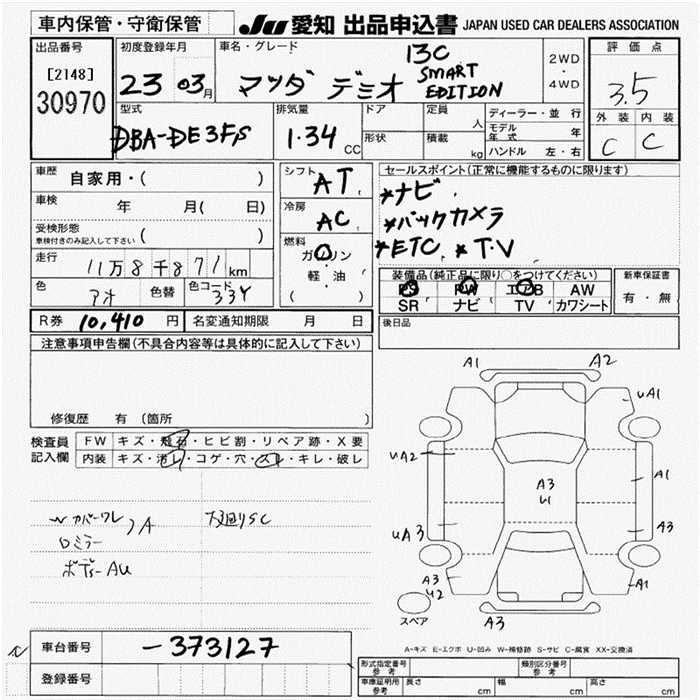 車内保管・守衛保管
JU 愛知 出品申込書 JAPAN USED CAR DEALERS ASSOCIATION
出品番号
[2148]
30970
初度登録年月
23 03月
車名・グレード
マツダ デミオ
13C
SMART
EDITION
2WD
・
4WD
評価点
3.5
外装 内装
C C
型式
DBA-DE3FS
排気量
1.34 CC
ドア
形状
定員 人
積載 kg
ディーラー・並行
モデル年式 年
ハンドル 左・右
車歴 自家用・( )
車検 年 月( 日)
受検形態
車検付きのみ記入して下さい ( )
走行 11万8千871km
色 アオ 色替 色コード 33Y
シフト AT
冷房 AC
燃料
ガソリン
・
軽・油
( )
セールスポイント(正常に機能するものに限ります)
*ナビ
*バックカメラ
*ETC *TV
装備品(純正品に限り○をつけてください)
PS PW エアB AW
SR ナビ TV カワシート
新車保証書
有・無
R券 10,410 円 名変通知期限 月 日
後日品
注意事項申告欄(不具合内容等は具体的に記入して下さい)
修復歴 有 (箇所
検査員
記入欄
FW キズ・飛石・ヒビ割・リペア跡・X要
内装 キズ・汚レ・コゲ・穴・スレ・キレ・破レ
カバーワレ
ロミラー
A
ボディAU
下廻りSC
A1 A2
uA1
uA2
A3
A1
uA3
A3
A3
A1
A3
スペア
A-キズ E-エクボ U-凹み W-補修跡 S-サビ C-腐食 XX-交換済
車台番号 -373127
登録番号
形式指定番号
参考
類別区分番号
参考
車庫証明用
参考
長さ cm 幅 cm 高さ cm